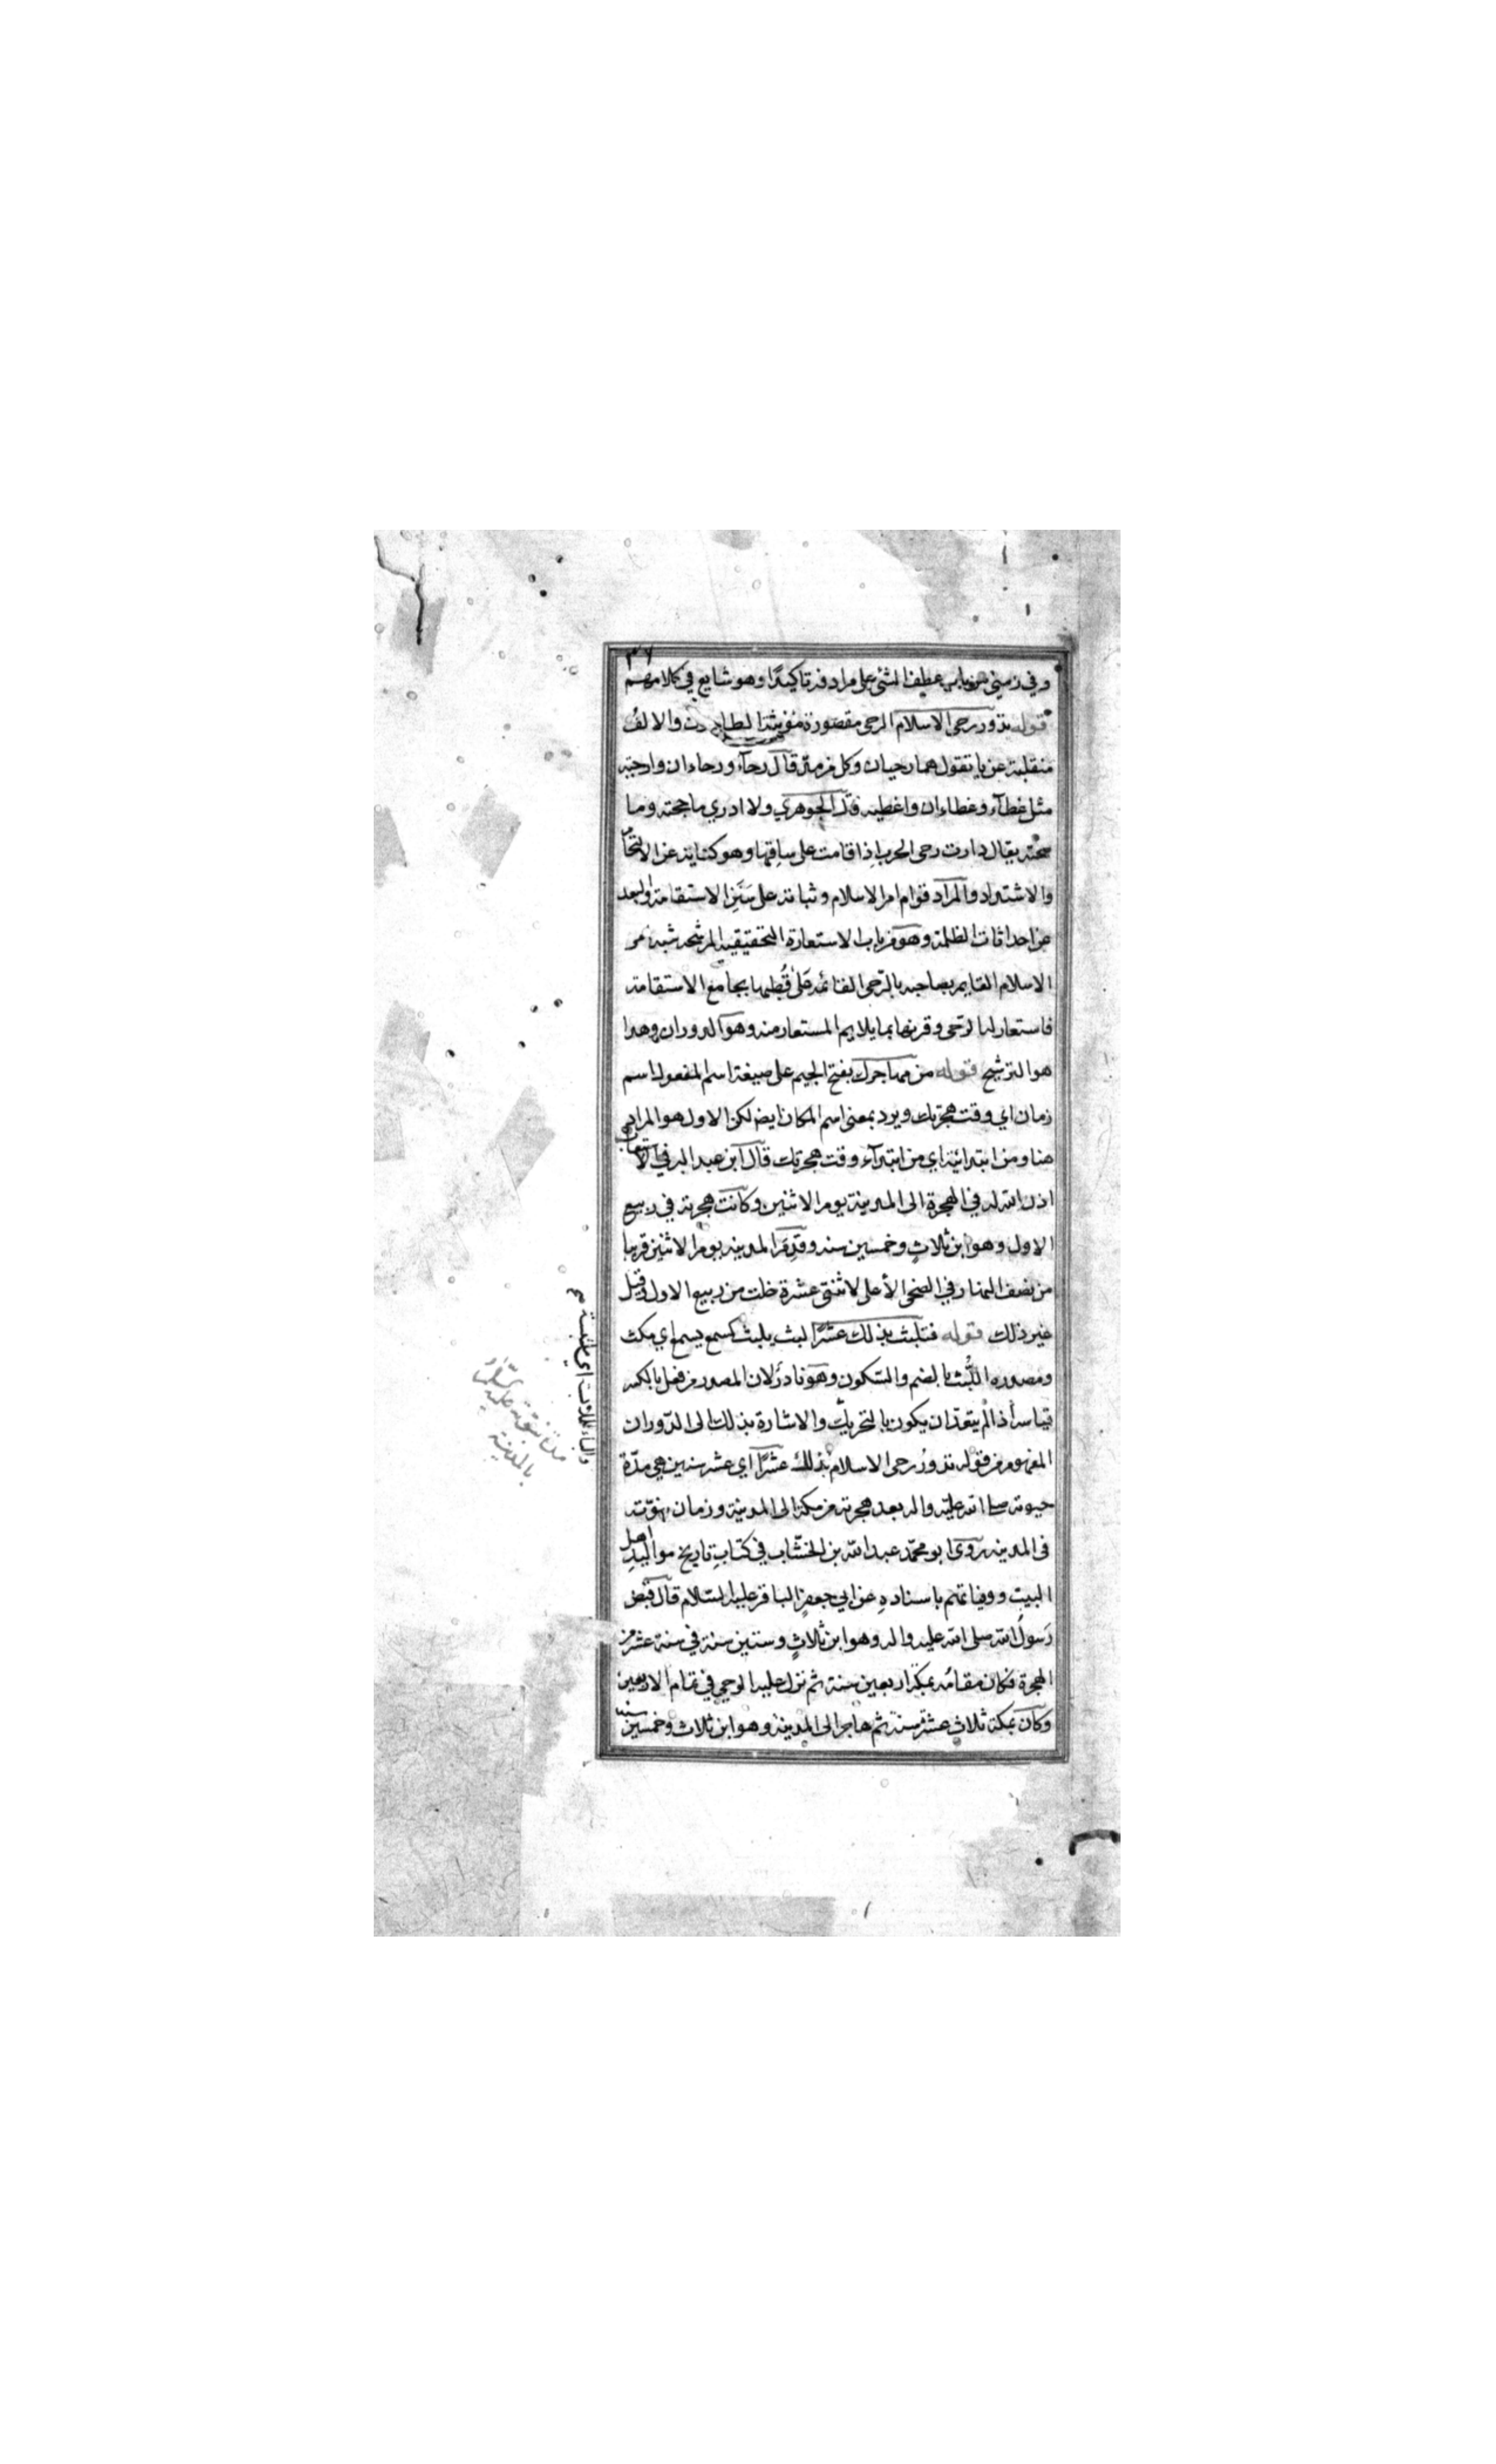 ٣٧
وفي زمني من باب عطف الشئ على مرادفه تاكيدًا وهو شايع في كلامهم
قوله تدور رحى الاسلام الرحى مقصورة مؤنثة الطاحون والالف
منقلبة عن ياء تقول هما رحيان وكل من مد قال رحآء ورحاءان وارحية
مثل غطآء وغطاءان واغطية قال الجوهري ولا ادري ما حجته وما
صحته يقال دارت رحى الحرب اذا قامت على ساقها وهو كناية عن الالتحام
والاشتداد والمراد قوام امر الاسلام وثباته على سنن الاستقامة والبعد
من احداثات الظلمة وهو من باب الاستعارة التحقيقية المرشحه شبه امر
الاسلام القايم بصاحبه بالرّحى القائمه على قُطبها بجامع الاستقامة
فاستعار له الرّحى وقرنها بما يلايم المستعار منه وهو الدوران وهذا
هو الترشيح قوله من مهاجرك بفتح الجيم على صيغة اسم المفعول اسم
زمان اي وقت هجرتك ويرد بمعنى اسم المكان ايض لكن الاول هو المراد
هنا ومن ابتدائية اي من ابتدآء وقت هجرتك قال ابن عبد البر في الاستيعاب
اذن الله له في الهجرة الى المدينة يوم الاثنين وكانت هجرته في ربيع
الاول وهو ابن ثلاثٍ وخمسين سنه وقدم المدينه يوم الاثنين قريبا
من نصف النهار في الضحى الأعلى لاثنتى عشرة خلت من ربيع الاول وقيل
غير ذلك قوله فتلبث بذلك عشرًا لبث يلبث كسمع يسمع اي مكث
ومصدره اللُّبْث بالضم والسّكون وهو نادر لان المصدر من فعل بالكسر
قياسه اذا لم يتعدّ ان يكون بالتحريك والاشارة بذلك الى الدّوران
المفهوم من قوله تدور رحى الاسلام بذلك عشرًا اي عشر سنين هي مدّة
حيوته صلى الله عليه واله بعد هجرته من مكة الى المدينة وزمان نبوّته
فى المدينه روى ابو محمّد عبد الله بن الخشّاب في كتابِ تاريخ مواليدِ اهل
البيت ووفياتهم باسنادهِ عن ابي جعفرٍ الباقر عليه السّلام قال قُبِض
رَسولُ الله صلى الله عليه واله وهو ابن ثلاثٍ وستين سنة في سنة عشر من
الهجرة فكان مقامُه بمكة اربعين سنة ثم نزل عليه الوحي في تمام الاربعين
وكان بمكة ثلاث عشرة سنة ثم هاجر الى المدينة وهو ابن ثلاث وخمسين سنه
بالمدينة